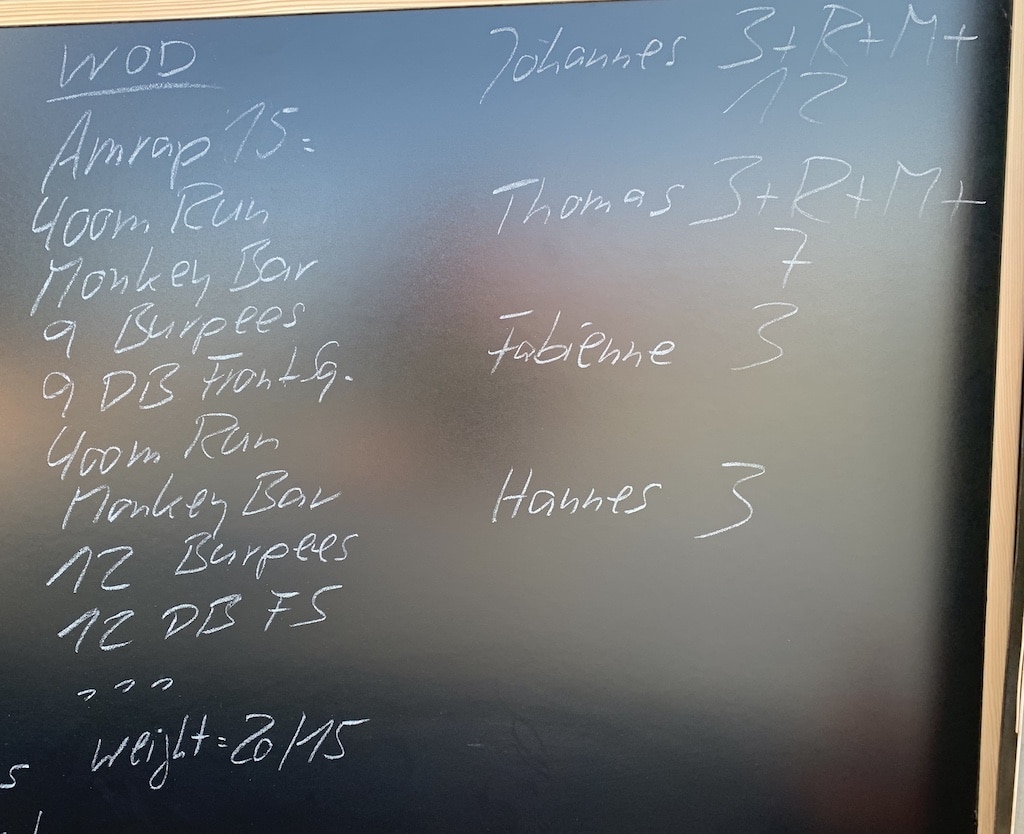 WOD
Amrap '15:
400m Run
Monkey Bar
9 Burpees
9 DB Front Sq.
400m Run
Monkey Bar
12 Burpees
12 DB FS
,,,
weight = 20/15
s
Johannes 3+R+M+
12
Thomas 3+R+M+
7
Fabienne 3
Hannes 3